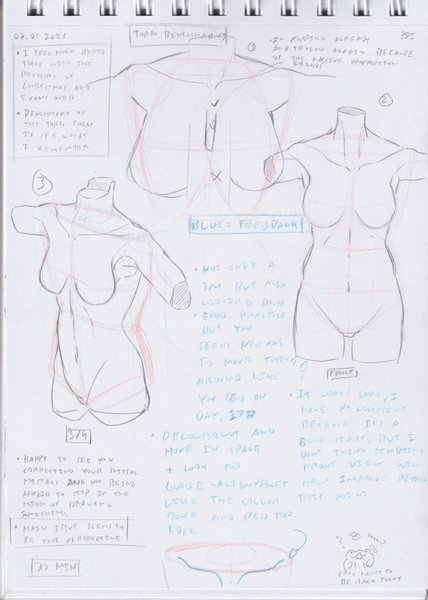 07.01.2025
TORSO BENCHMARKS
PDS
• I FEEL MUCH BETTER
TODAY WITH THE
PRESSURE OF
CHRISTMAS AND
EXAMS OVER
• BENCHMARK OF
THE TORSO TODAY
TO SEE WHAT
I REMEMBER
1
• I'M STOPPING ALREADY
AND TRYING AGAIN BECAUSE
OF THE MASSIVE PROPORTION
ERRORS
2
3
BLUE = FEEDBACK
• NOT ONLY A
3/4 BUT ALSO
LOOKING DOWN.
• GOOD PRACTICE
BUT YOU
SEEM NERVOUS
TO MOVE THINGS
AROUND LIKE
YOU DID ON
DAY
FRONT
• IT LOOKS GOOD, I
HAVE NO COMMENT
BECAUSE IT'S A
GOOD START, BUT I
DON'T THINK STUDYING
FRONT VIEW WILL
HELP IMPROVE BEYOND
THIS POINT
3/4
• DECONSTRUCT AND
MOVE IN SPACE
+ LOOK FOR
ALIGNMENT
LIKE THE COLLAR
BONE AND RED TOP
EDGE
• HAPPY TO SEE YOU
CORRECTING YOUR INITIAL
MISTAKE AND NOT BEING
AFRAID TO STOP IN THE
MIDDLE OF DRAWING
SOMETHING.
• MAIN ISSUE SEEMS TO
BE THE PERSPECTIVE
30 MIN
HAPPY TO
BE BACK